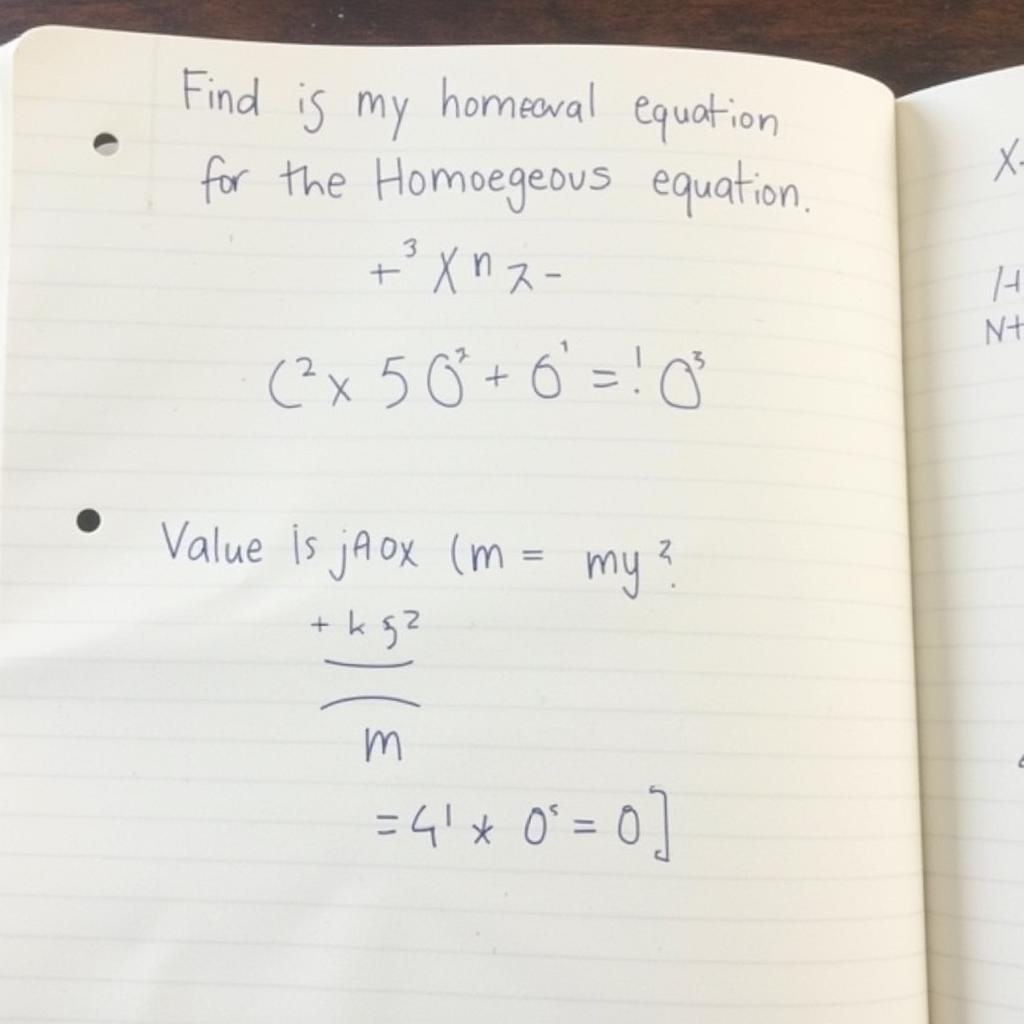 Find is my homeoval equation
for the Homoegeous equation.
+³ X n
(² x 5 0² + 6¹ = ! 0³
Value is jAox (m = my ?
+ k g²
m
= 4¹ * 0ˢ = 0]
X
N+